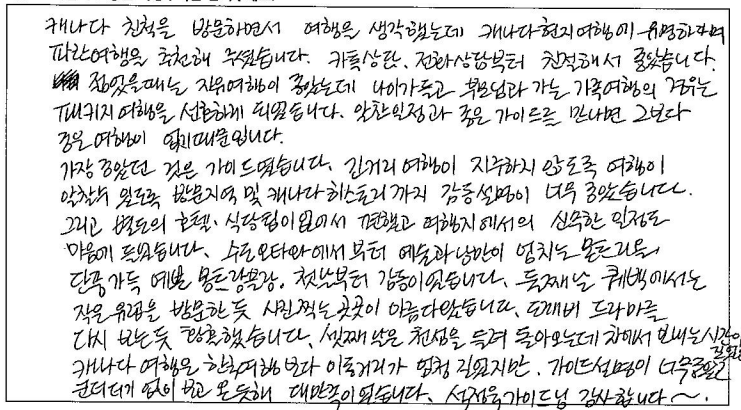 캐나다 친척을 방문하면서 여행을 생각했는데 캐나다현지여행에 유명하다며
파란여행을 추천해 주셨습니다. 카톡상담, 전화상담부터 친절해서 좋았습니다.
젊었을때는 자유여행이 좋았는데 나이가들고 부모님과 가는 가족여행의 경우는
패키지여행을 선호하게 되었습니다. 알찬일정과 좋은 가이드를 만나면 그보다
좋은여행이 없기때문입니다.
가장 좋았던 것은 가이드였습니다. 긴거리 여행이 지루하지 않도록 여행이
알찰수 있도록 방문지역 및 캐나다히스토리까지 감동설명이 너무 좋았습니다.
그리고 별도의 호텔, 식당팁이없어서 편했고 여행지에서의 신속한 일정도
마음에 들었습니다. 수도오타와에서부터 예술과낭만이 넘치는 몬트리올,
단풍가득 예쁜 몽트랑블랑. 첫날부터 감동이었습니다. 둘째날 퀘백에서는
작은 유럽을 방문한듯 사진찍는 곳곳이 아름다웠습니다. 도깨비 드라마를
다시 보는듯 황홀했습니다. 셋째날은 천섬을 들려 돌아오는데 차에서 보내는시간이
길었던
캐나다 여행은 한국여행보다 이동거리가 엄청 길었지만, 가이드설명이 너무좋았고
군더더기 없이 보고 온듯해 대만족이었습니다. 가이드님 감사합니다~.